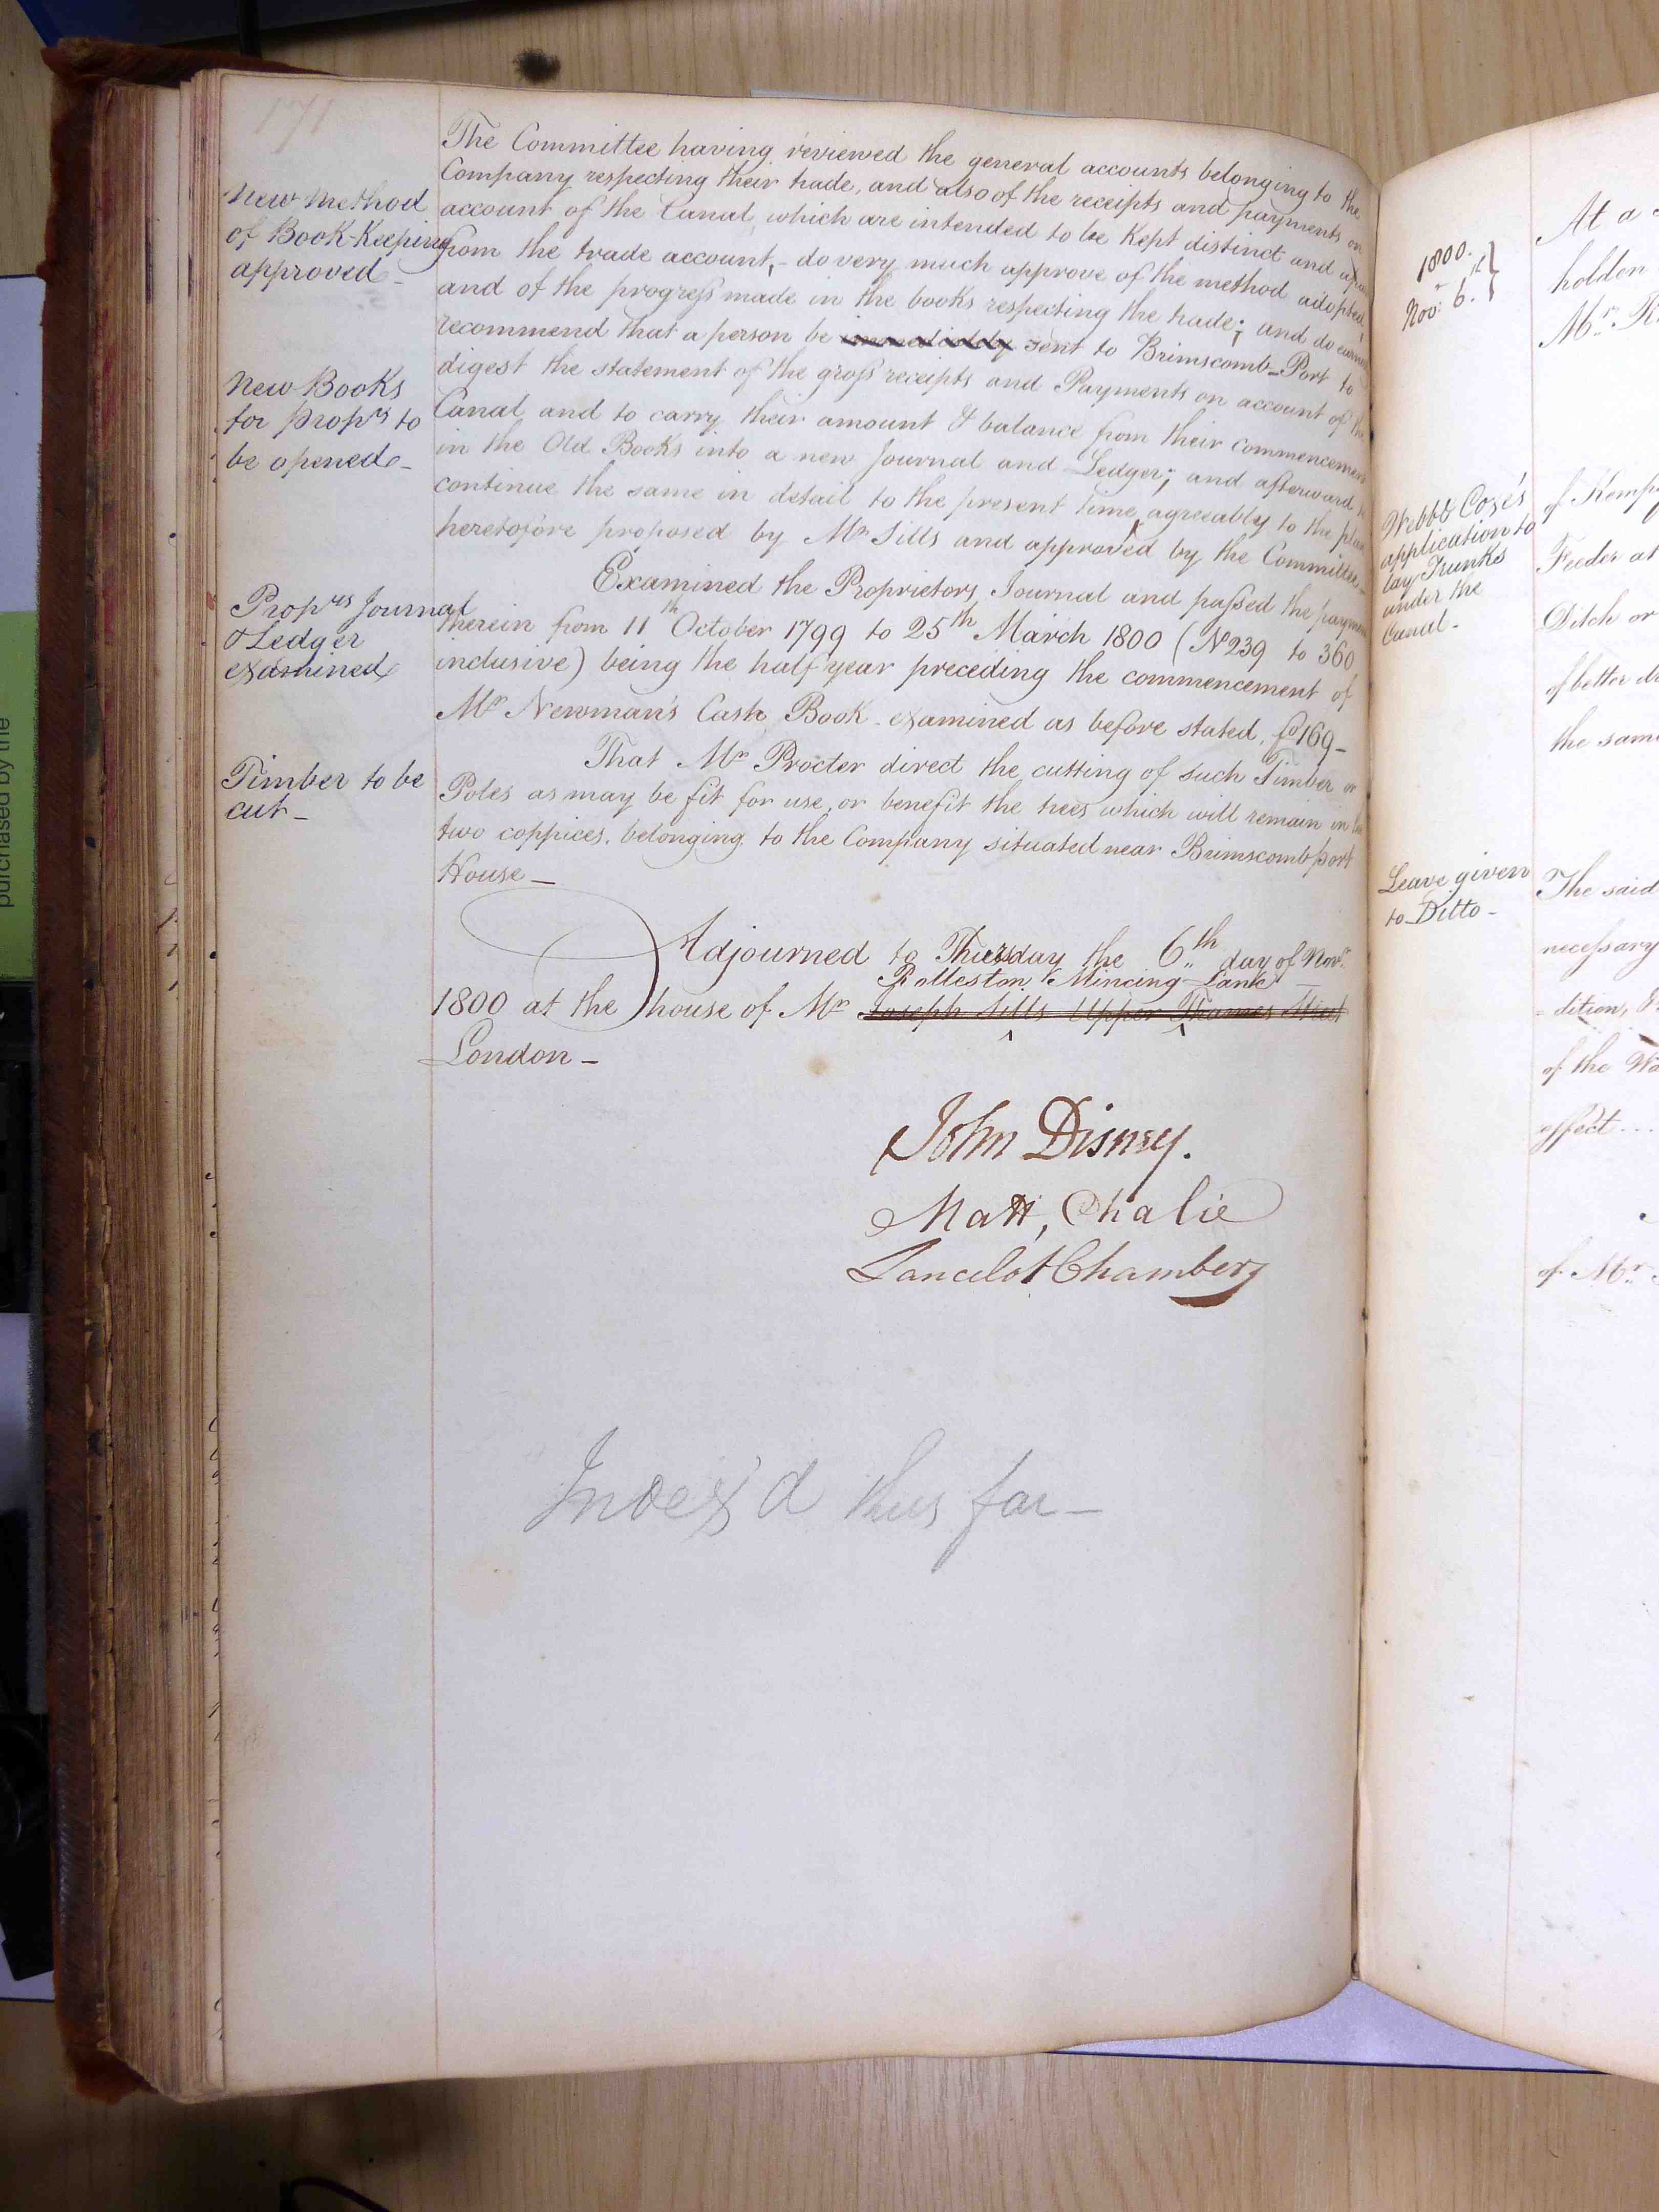 171
The Committee having reviewed the general accounts belonging to the
Company respecting their trade, and also of the receipts and payments on
New Method
of Book-Keeping
approved -
account of the Canal, which are intended to be kept distinct and
from the trade account, - do very much approve of the method adopted,
and of the progress made in the books respecting the trade; and do
recommend that a person be immediately sent to Brimscomb-Port to
digest the statement of the gross receipts and Payments on account of the
New Books
for Proprs to
be opened -
Canal and to carry their amount & balance from their commencement
in the Old Books into a new Journal and Ledger; and afterward to
continue the same in detail to the present time, agreeably to the plan
heretofore proposed by Mr Sills and approved by the Committee -
Examined the Proprietors Journal and passed the payments
Proprs Journal
& Ledger
examined
therein from 11th October 1799 to 25th March 1800 (No 239 to 360
inclusive) being the half year preceding the commencement of
Mr Newman's Cash Book - examined as before stated, fo 169 -
That Mr Procter direct the cutting of such Timber or
Timber to be
cut -
Poles as may be fit for use, or benefit the trees which will remain in
two coppices, belonging to the Company situated near Brimscomb port
House -
Adjourned to Thursday the 6th day of Novr
Rolleston Mincing Lane
1800 at the house of Mr Joseph Sills Upper Thames Street
London -
John Disney.
Matt, Chalie
Lancelot Chambers
Index'd thus far -
1800.
Nov: 6.th
At a
holden
Mr.
Webb & Coxe's
application to
lay Trunks
under the
Canal -
of Kemp
Feeder at
Ditch or
of better
the same
Leave given
to Ditto -
The said
necessary
- dition, &
of the Wa
effect ...
of Mr.
purchased by the